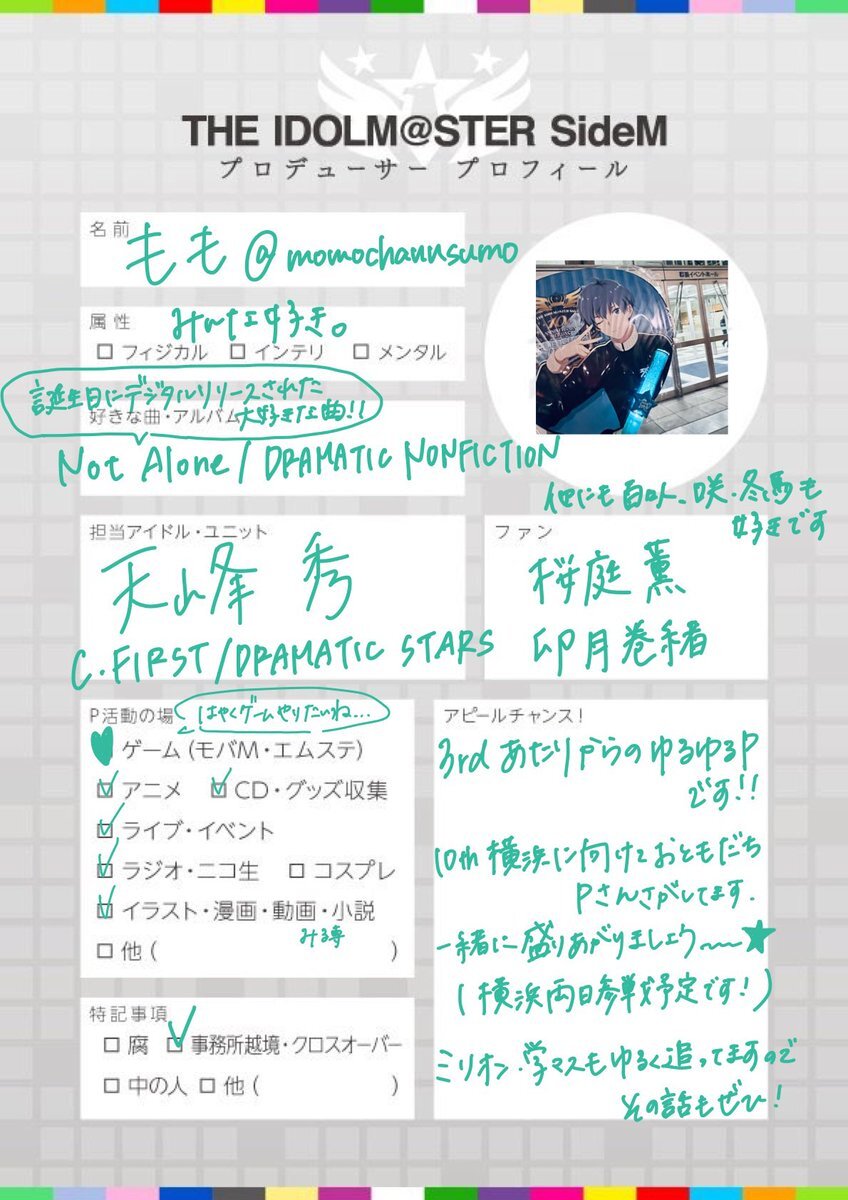 THE IDOLM@STER SideM
プロデューサー プロフィール
名前
もも@momochannsumo
属性
みんな好き。
□ フィジカル □ インテリ □ メンタル
誕生日にデジタルリリースされた
大好きな曲!!
好きな曲・アルバム
Not Alone / DRAMATIC NONFICTION
他にも百々人、咲・冬馬も
好きです
担当アイドル・ユニット
天峰 秀
C.FIRST/DRAMATIC STARS
ファン
桜庭薫
卯月巻緒
P活動の場
はやくゲームやりたいね…
ゲーム(モバM・エムステ)
アニメ CD・グッズ収集
ライブ・イベント
ラジオ・ニコ生 □ コスプレ
イラスト・漫画・動画・小説
みる専
□ 他( )
特記事項
□ 腐 事務所越境・クロスオーバー
□ 中の人 □ 他( )
アピールチャンス!
3rdあたりからのゆるゆるP
です!!
10th横浜に向けておともだち
Pさんさがしてます.
一緒に盛りあがりましょう〜〜★
(横浜両日参戦予定です!)
ミリオン・学マスもゆるく追ってますので
その話もぜひ!